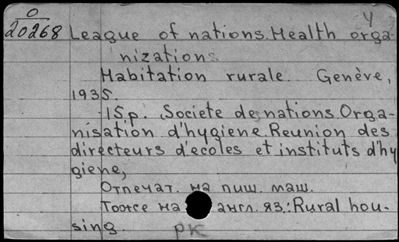 O
20268
У
League of nations. Health orga-
nizations
Habitation rurale. Genève,
1935.
15p. Societe de nations. Orga-
nisation d'hygiene Reunion des
directeurs d'ecoles et instituts d'hy
giene,
Отпечат. на пиш. маш.
Тоже на англ. яз.: Rural hou-
sing.
рк